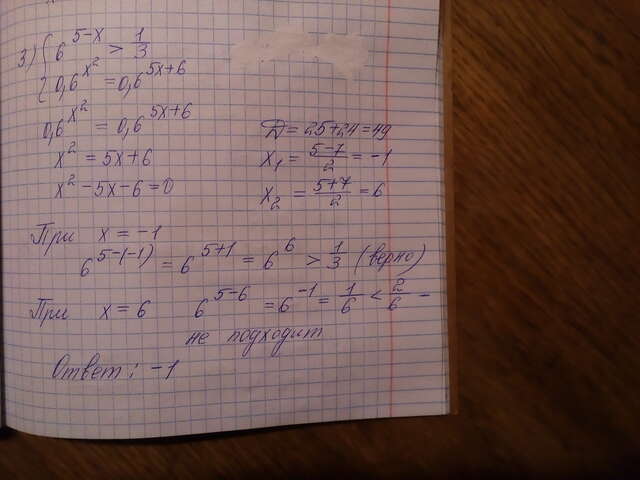 3) { 6^(5-x) > 1/3
{ 0,6^(x^2) = 0,6^(5x+6)
0,6^(x^2) = 0,6^(5x+6)
x^2 = 5x+6
x^2 - 5x - 6 = 0
D = 25+24 = 49
x_1 = (5-7)/2 = -1
x_2 = (5+7)/2 = 6
При x = -1
6^(5-(-1)) = 6^(5+1) = 6^6 > 1/3 (верно)
При x = 6 6^(5-6) = 6^(-1) = 1/6 < 2/6 -
не подходит
Ответ: -1